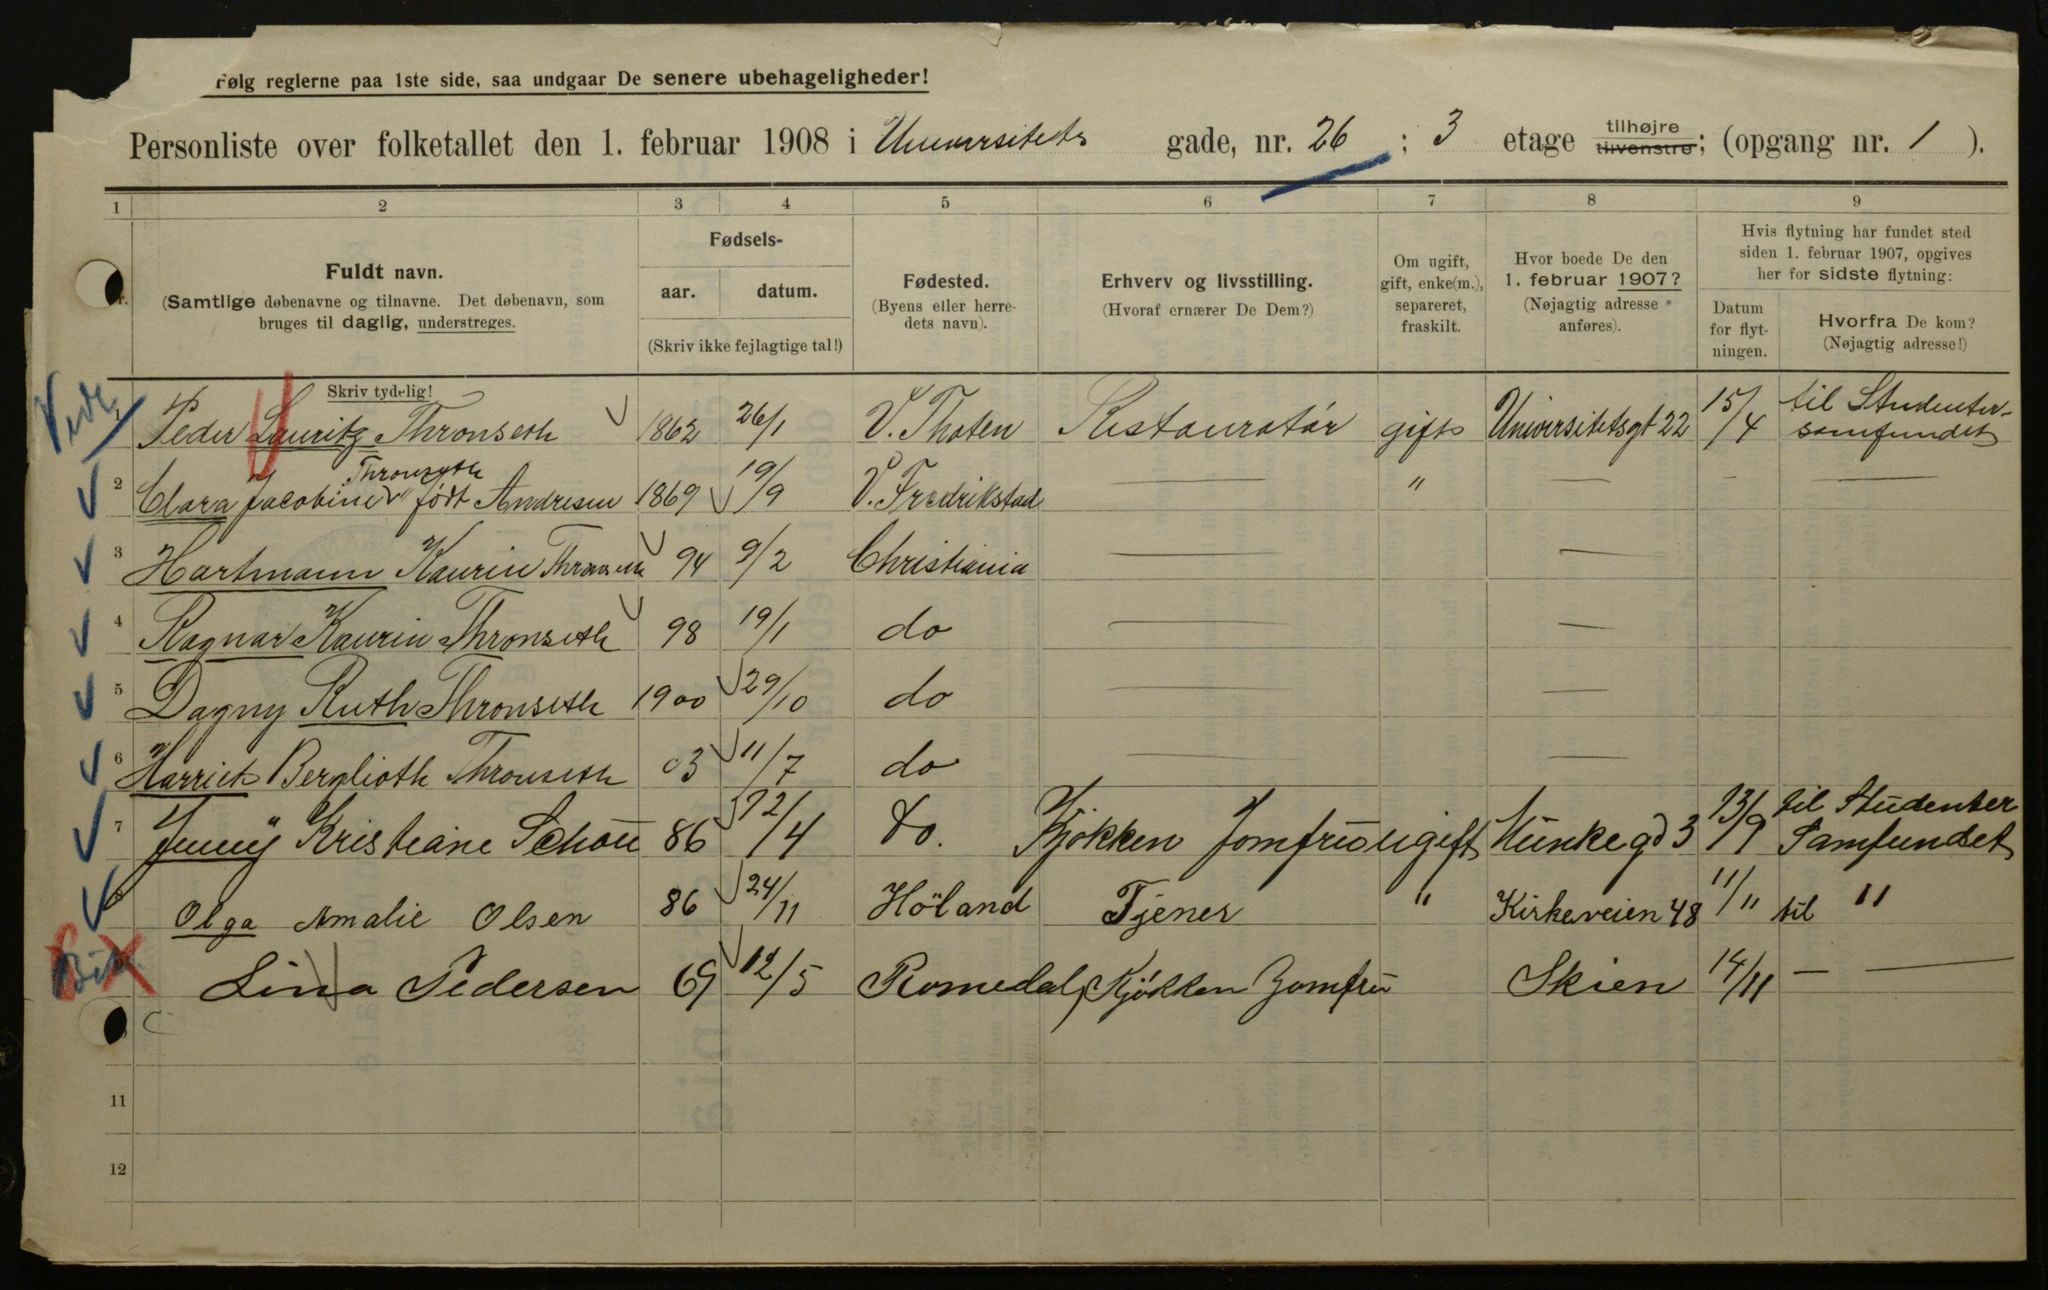 følg reglerne paa 1ste side, saa undgaar De senere ubehageligheder!
Personliste over folketallet den 1. februar 1908 i Universitets gade, nr. 26 ; 3 etage tilhøjre tilvenstre; (opgang nr. 1 ).
1 2 3 4 5 6 7 8 9
Fuldt navn.
(Samtlige døbenavne og tilnavne. Det døbenavn, som
bruges til daglig, understreges.
Skriv tydelig!
Fødsels-
aar. datum.
(Skriv ikke fejlagtige tal!)
Fødested.
(Byens eller herre-
dets navn).
Erhverv og livsstilling.
(Hvoraf ernærer De Dem?)
Om ugift,
gift, enke(m.),
separeret,
fraskilt.
Hvor boede De den
1. februar 1907?
(Nøjagtig adresse
anføres).
Hvis flytning har fundet sted
siden 1. februar 1907, opgives
her for sidste flytning:
Datum
for flyt-
ningen.
Hvorfra De kom?
(Nøjagtig adresse!)
1 Peder Lauritz Thronseth 1862 26/1 V. Thoten Restauratør gift Universitetsgt 22 15/4 til Studenter-
samfundet
Thronseth
2 Clara Jacobine født Andresen 1869 19/9 V. Fredrikstad — " — — —
3 Hartmann Kaurin Thronseth 94 9/2 Christiania — —
4 Ragnar Kaurin Thronseth 98 19/1 do — —
5 Dagny Ruth Thronseth 1900 29/10 do — —
6 Harriet Berglioth Thronseth 03 11/7 do — —
7 Jenny Kristiane Schou 86 12/4 do. Kjøkken Jomfru ugift Munkegd 3 13/9 til Studenter
Samfundet
Olga Amalie Olsen 86 24/11 Höland Tjener " Kirkeveien 48 11/11 til "
Lina Pedersen 69 12/5 Romedal Kjøkken Jomfru Skien 14/11 — —
11
12